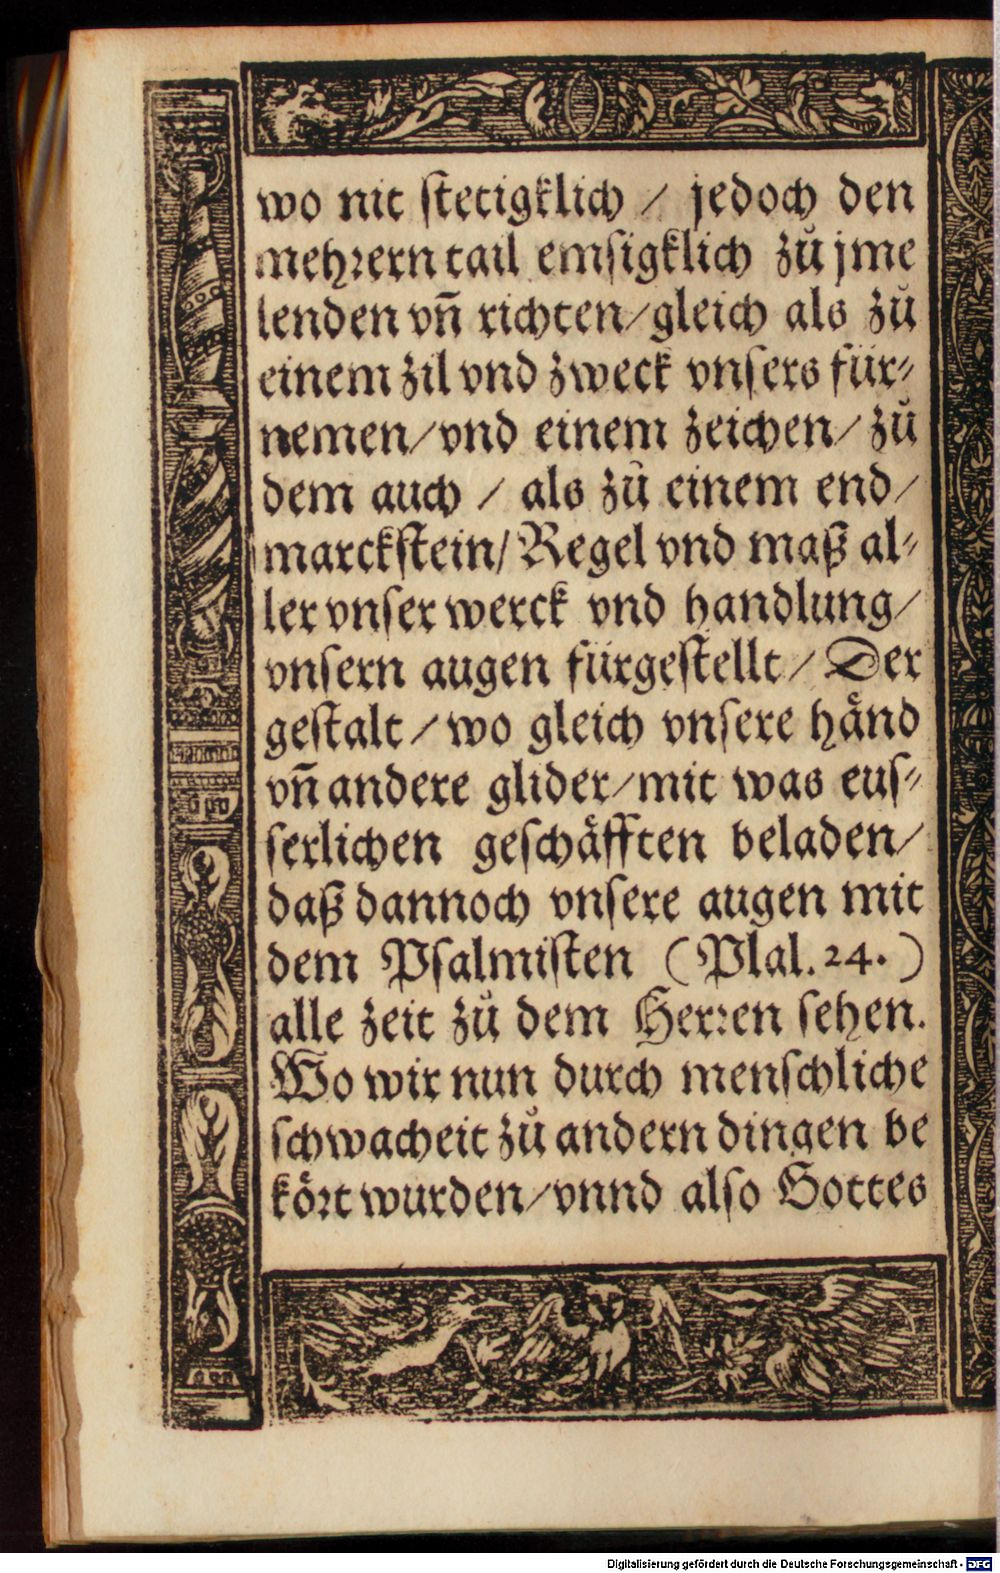 wo nit ſtetigklich / jedoch den
mehꝛern tail emſigklich zů jme
lenden vñ richten/gleich als zů
einem zil vnd zweck vnſers für⸗
nemen/vnd einem zeichen/ zů
dem auch / als zů einem end/
marckſtein/ Regel vnd maß al⸗
ler vnſer werck vnd handlung/
vnſern augen fürgeſtellt/ Der
geſtalt/ wo gleich vnſere hånd
vñ andere glider/mit was euſ⸗
ſerlichen geſchåfften beladen/
daß dannoch vnſere augen mit
dem Pſalmiſten (Plal. 24.)
alle zeit zů dem Herꝛen ſehen.
Wo wir nun durch menſchliche
ſchwacheit zů andern dingen be
köꝛt wurden/vnnd alſo Gottes
Digitalisierung gefördert durch die Deutsche Forschungsgemeinschaft - DFG